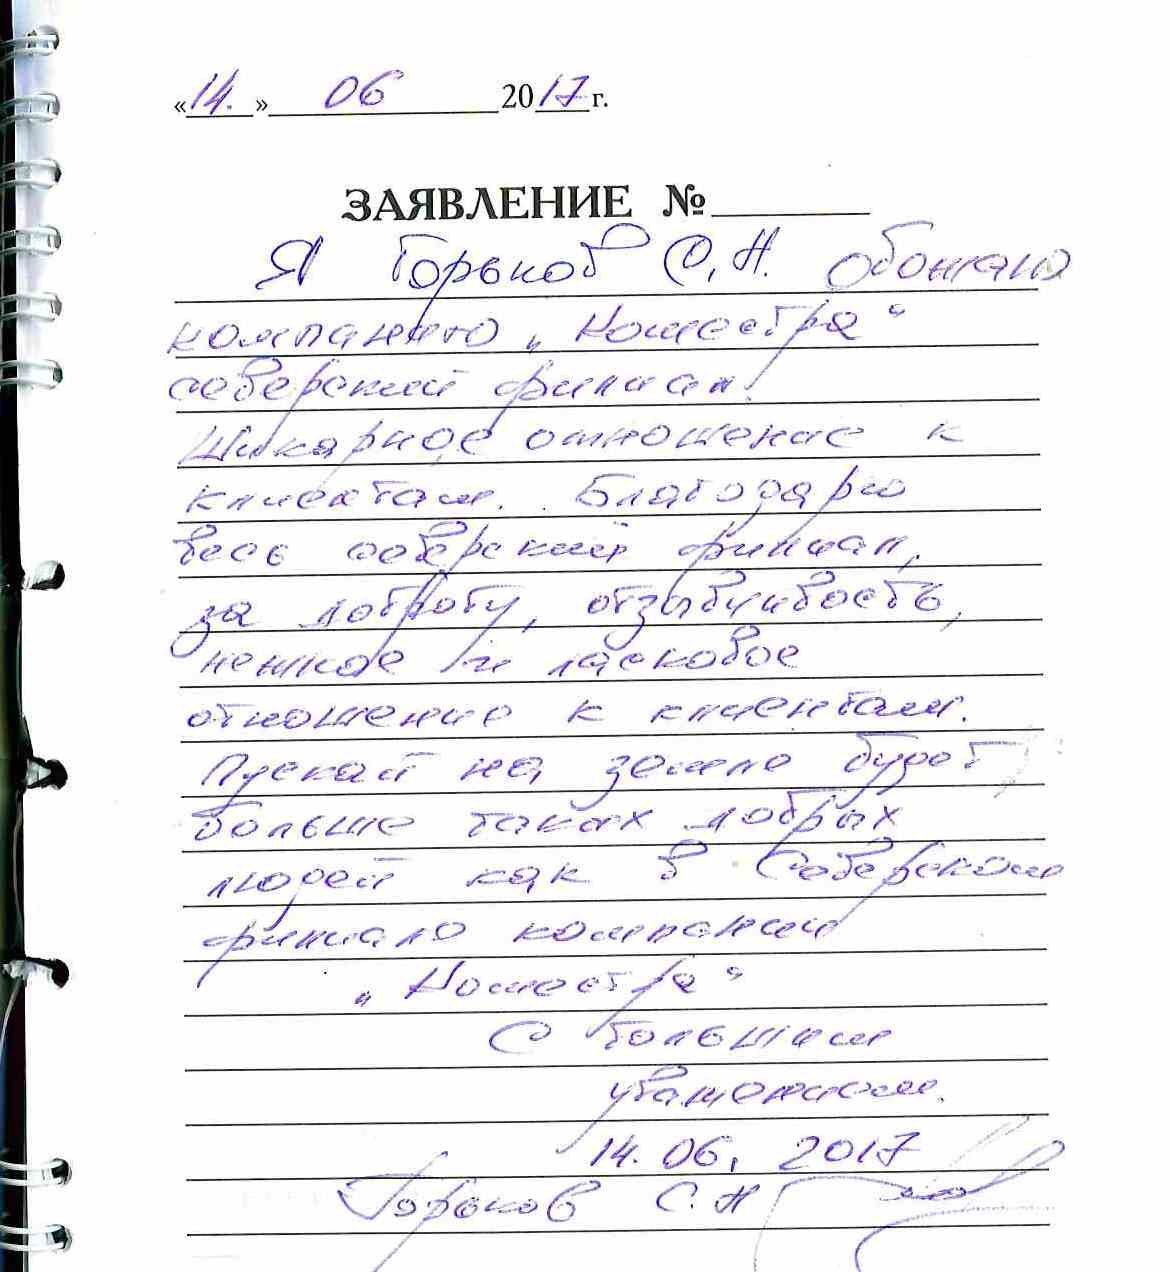 «14.» 06 2017 г.
ЗАЯВЛЕНИЕ №
Я Горьков С.Н. обожаю
компанию „Коместра“
северский филиал.
Шикарное отношение к
клиентам. Благодарю
весь северский филиал,
за доброту, отзывчивость,
нежное и ласковое
отношение к клиентам.
Пускай на земле будет
больше таких добрых
людей как в Северском
филиале компании
„Коместра“
С большим
уважением.
14.06. 2017
Горьков С.Н